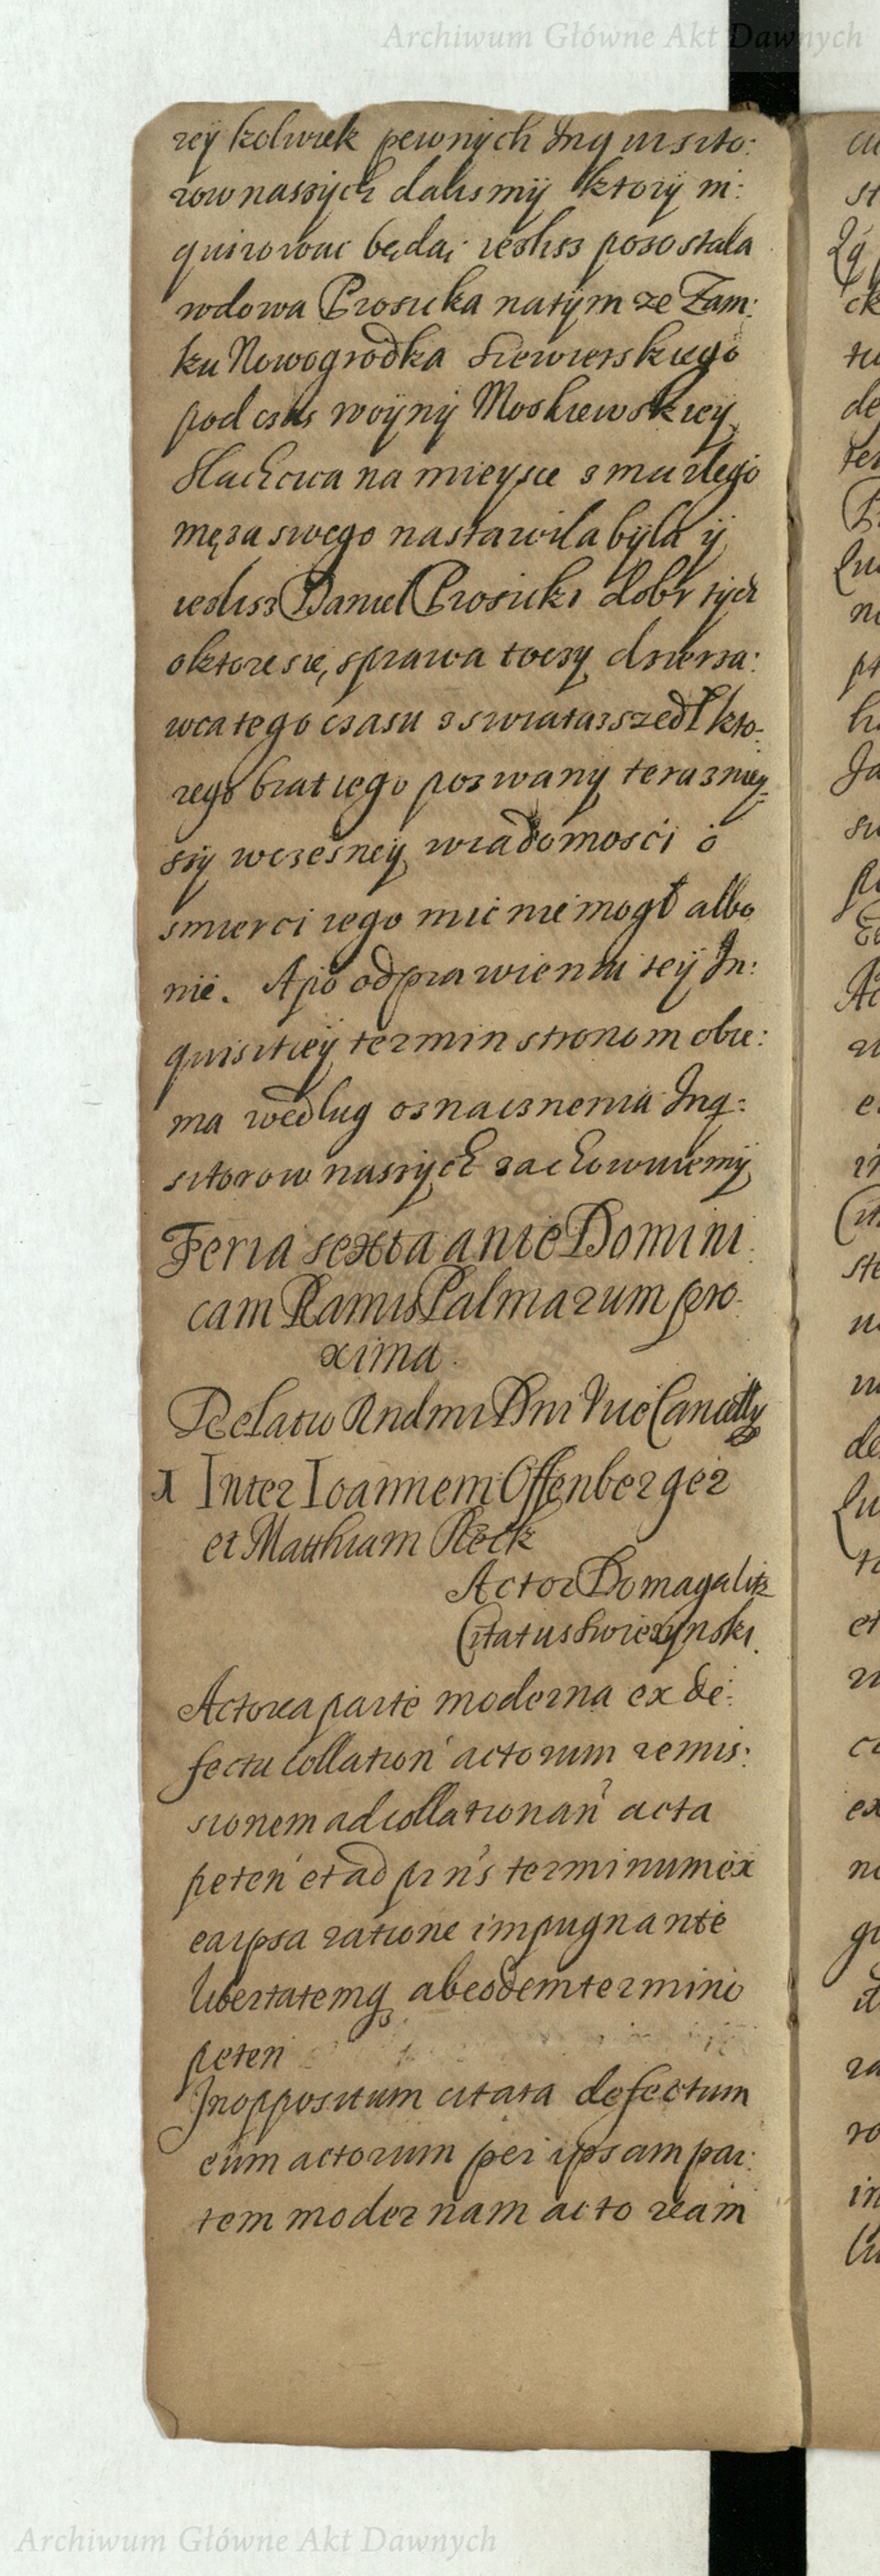 Archiwum Główne Akt Dawnych
reÿ kolwiek pewnÿch Inquisito:
row nassÿch dalismÿ ktorÿ in:
quirowac będai ieslisz pozostala
wdowa Prosicka natÿm ze Zam:
ku Nowogrodka Siewierskiego
pod czas woÿnÿ Moskiewskieÿ
slachcica na mieÿsce zmarlego
męza swego nastawila bÿla ÿ
ieslisz Daniel Prosicki dobr tÿch
oktore się sprawa toczÿ dzierza:
wca tego czasu z swiata zszedł kto-
rego brat iego pozwanÿ teraznieÿ-
szÿ wczesneÿ wiadomosci o
smierci iego miec nie mogł albo
nie. A po odprawieniu teÿ In:
quisitieÿ termin stronom obie:
ma według oznacznenia Inq:
sitorow nassÿch zachowuiemÿ
Feria sexta ante Domini
cam Ramis Palmarum pro-
xima.
Relatio Rndmi Dni Vice Cancelly
1 Inter Ioannem Offenberger
et Matthiam Röck
Actor Domagalitz
Citatus Swierzynski.
Actorea parte moderna ex de:
fectu collation actorum remis:
sionem ad collationan acta
peten et ad prns terminum ex
ea ipsa ratione impugnante
libertatemq ab eodem termino
peten
In oppositum citata defectum
eum actorum per ipsam par:
tem modernam actoream
Archiwum Główne Akt Dawnych